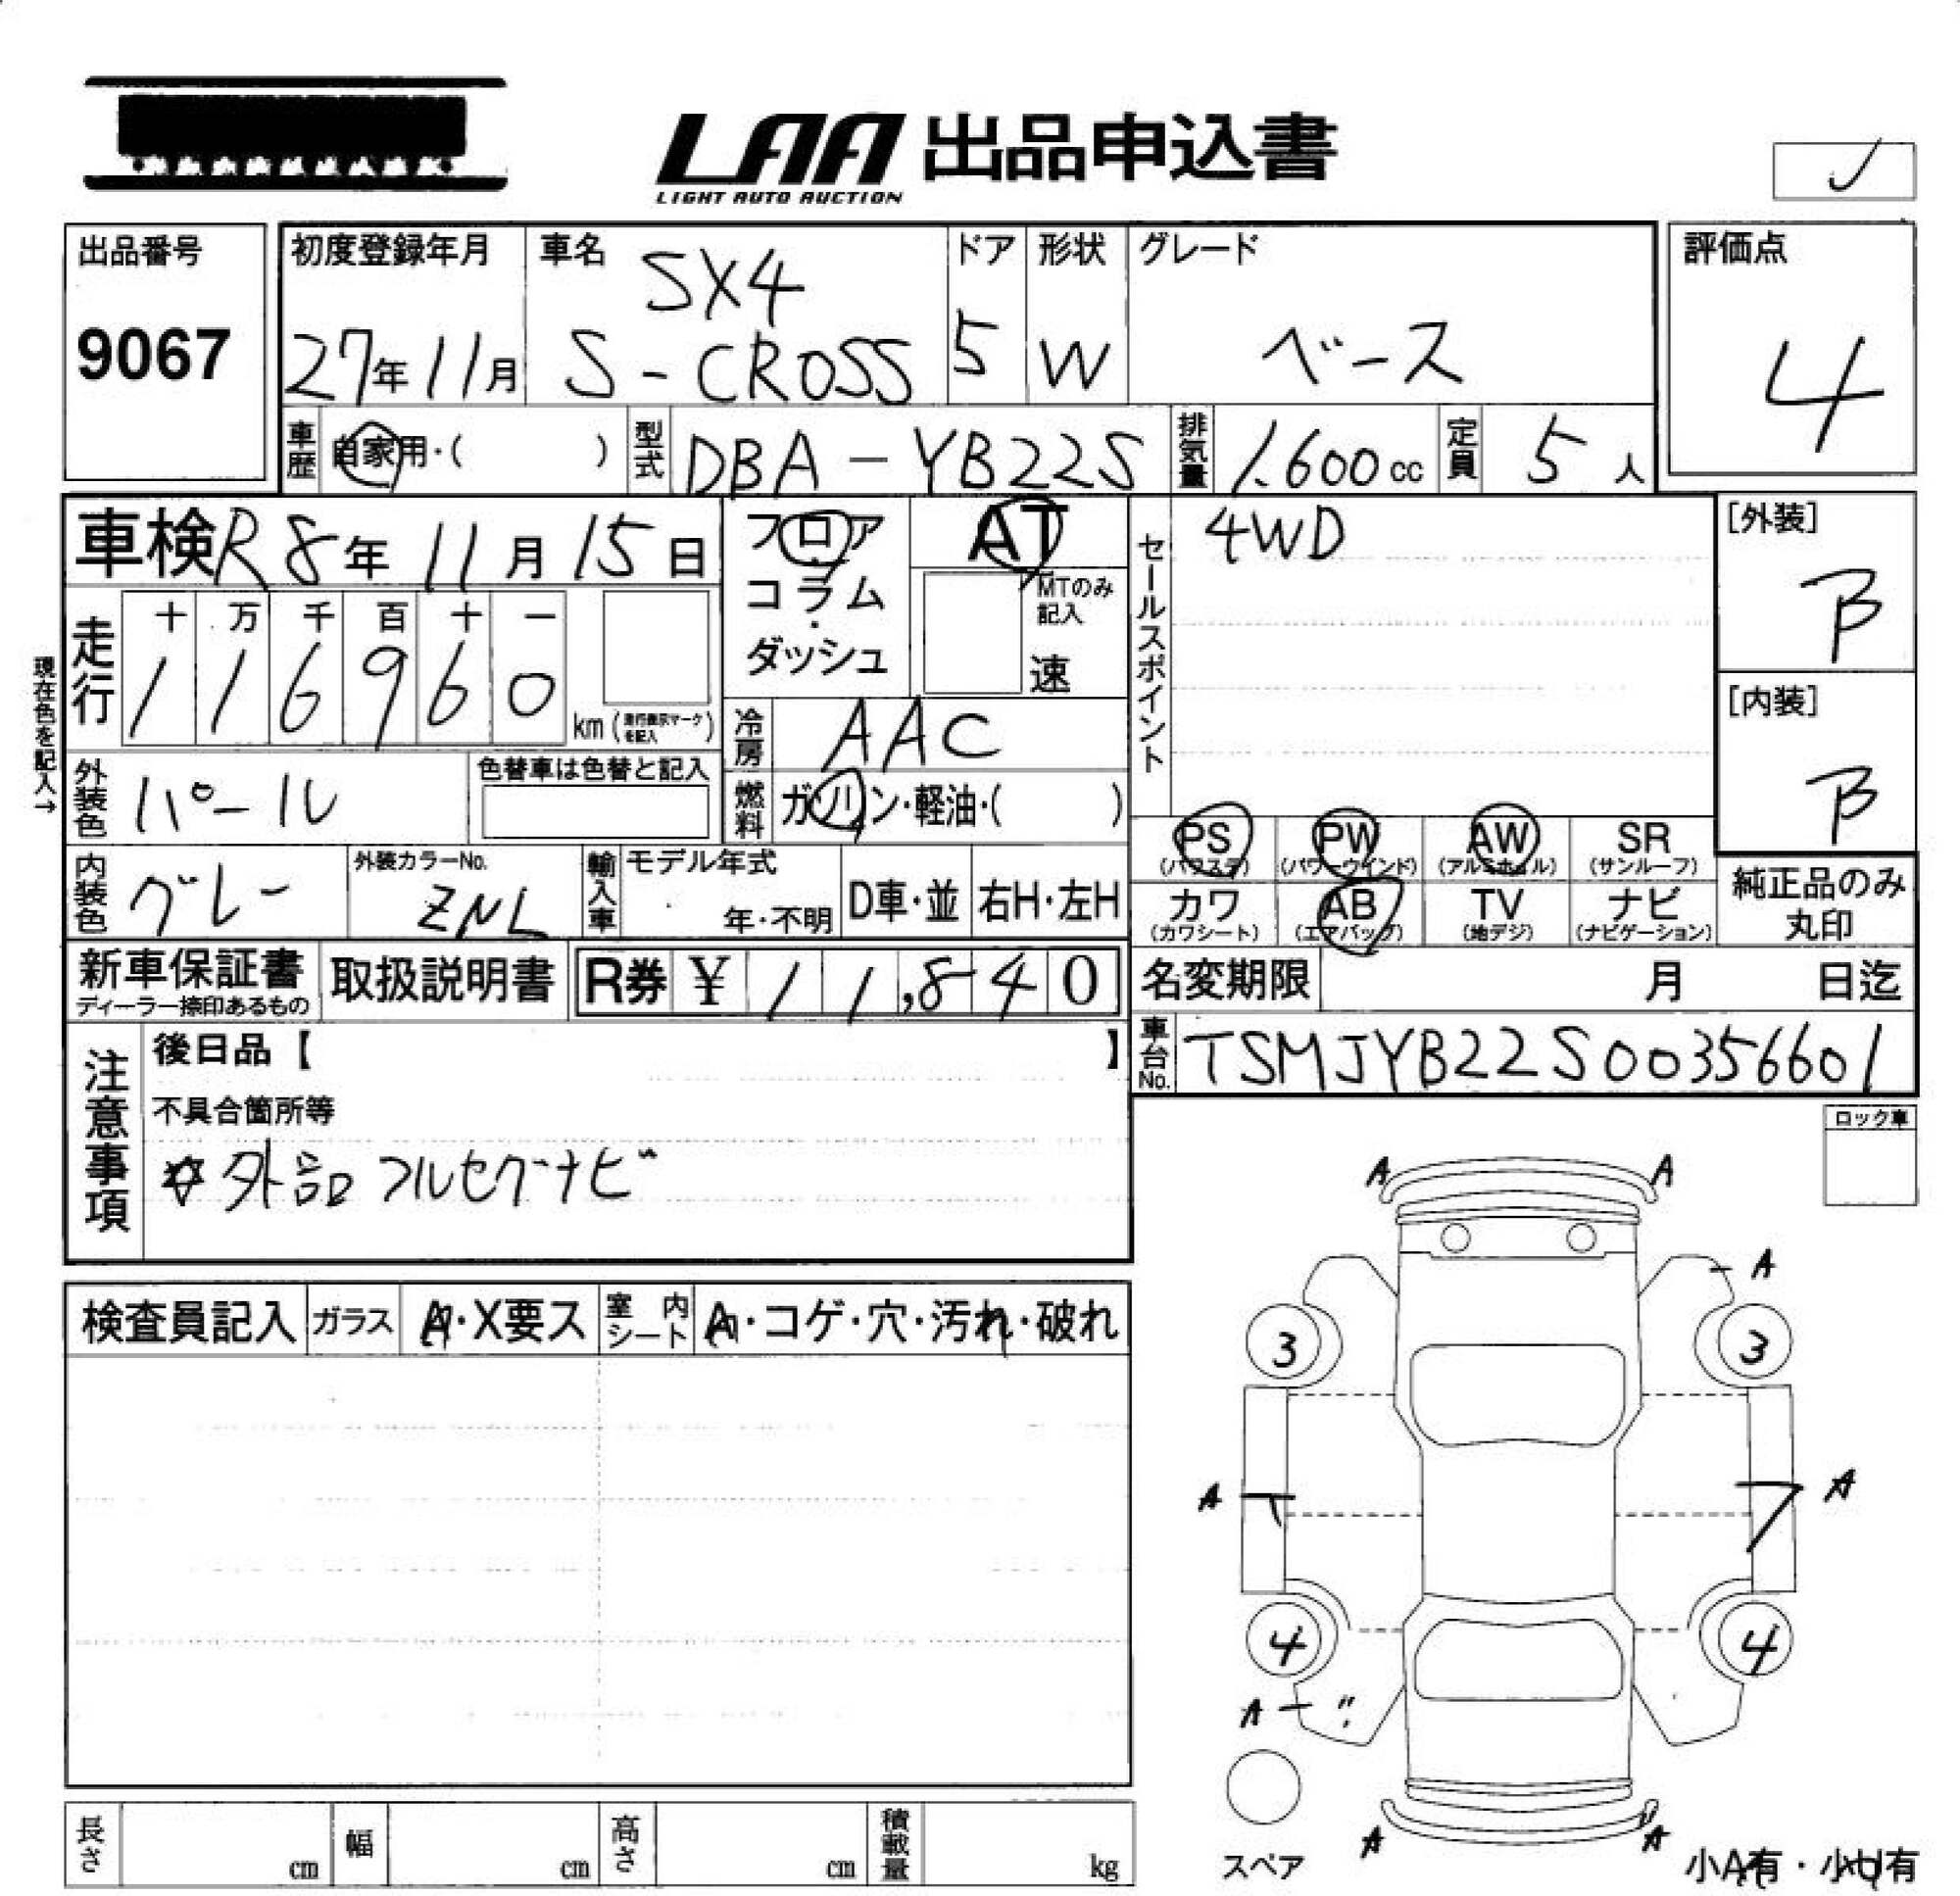 LAA 出品申込書
LIGHT AUTO AUCTION
出品番号
9067
初度登録年月
27年11月
車名
SX4
S-CROSS
ドア
5
形状
W
グレード
ベース
評価点
4
車歴 自家用・( )
型式 DBA-YB22S
排気量 1.600cc
定員 5人
車検 R8年11月15日
フロア・コラム・ダッシュ
AT
MTのみ記入
速
セールスポイント
4WD
[外装]
B
[内装]
B
現在色を記入→
走行
十 万 千 百 十 一
1 1 6 9 6 0
km (走行表示マークを記入)
冷房 AAC
燃料 ガソリン・軽油・( )
外装色 パール
色替車は色替と記入
内装色 グレー
外装カラーNo.
ZNL
輸入車
モデル年式
年・不明
D車・並
右H・左H
PS
(パワステ)
PW
(パワーウインド)
AW
(アルミホイル)
SR
(サンルーフ)
カワ
(カワシート)
AB
(エアバッグ)
TV
(地デジ)
ナビ
(ナビゲーション)
純正品のみ
丸印
新車保証書
ディーラー捺印あるもの
取扱説明書
R券 ¥ 11,840
名変期限 月 日迄
車台No. TSMJYB22S00356601
注意事項
後日品【 】
不具合箇所等
☆外部フルセグナビ
ロック車
検査員記入
ガラス A・X要ス
室内シート A・コゲ・穴・汚れ・破れ
A A
A
3 3
A A
4 4
A
A A
スペア
小A有・小U有
長さ cm
幅 cm
高さ cm
積載量 kg